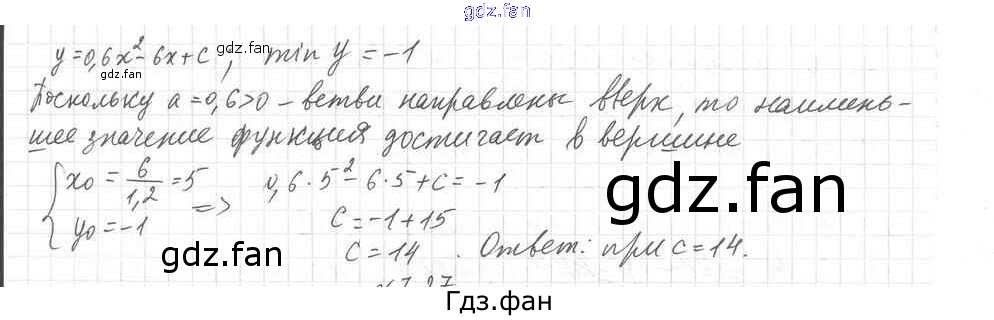 gdz.fan
y=0,6x²-6x+c, min y = -1
gdz.fan
gdz.fan
Поскольку a=0,6>0 - ветви направлены вверх, то наимень-
шее значение функция достигает в вершине
{ x₀ = 6/1,2 = 5
y₀ = -1
=> 0,6·5²-6·5+c = -1
c = -1+15
c = 14. Ответ: при c=14.
gdz.fan
gdz.fan
Гдз.фан